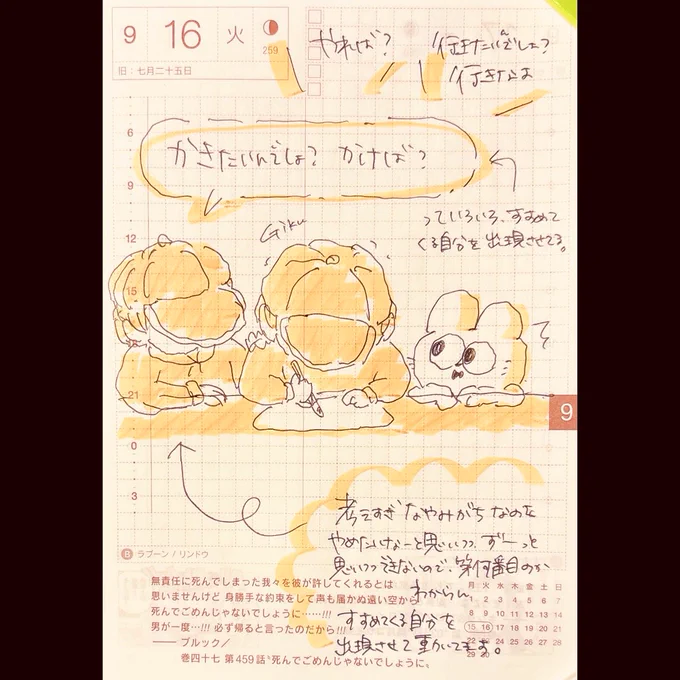 9 16 火
259
旧：七月二十五日
やれば？
行きたいんでしょ？
行きなよ
かきたいんでしょ？ かけば？
っていろいろ、すすめて
くる自分を出現させてる。
Giku
6
9
12
15
18
21
0
3
9
考えすぎなやみがちなのを
やめたいなーと思いつつ、ずーっと
思いつつできないので、第何番目のか
わからん
すすめてくる自分を
出現させて動いてます。
B ラブーン / リンドウ
無責任に死んでしまった我々を彼が許してくれるとは
思いませんけど 身勝手な約束をして声も届かぬ遠い空から
死んでごめんじゃないでしょうに……!!!
男が一度…!!! 必ず帰ると言ったのだから!!!
―― ブルック／
巻四十七 第459話“死んでごめんじゃないでしょうに”
月 火 水 木 金 土 日
1 2 3 4 5 6 7
8 9 10 11 12 13 14
15 16 17 18 19 20 21
22 23 24 25 26 27 28
29 30